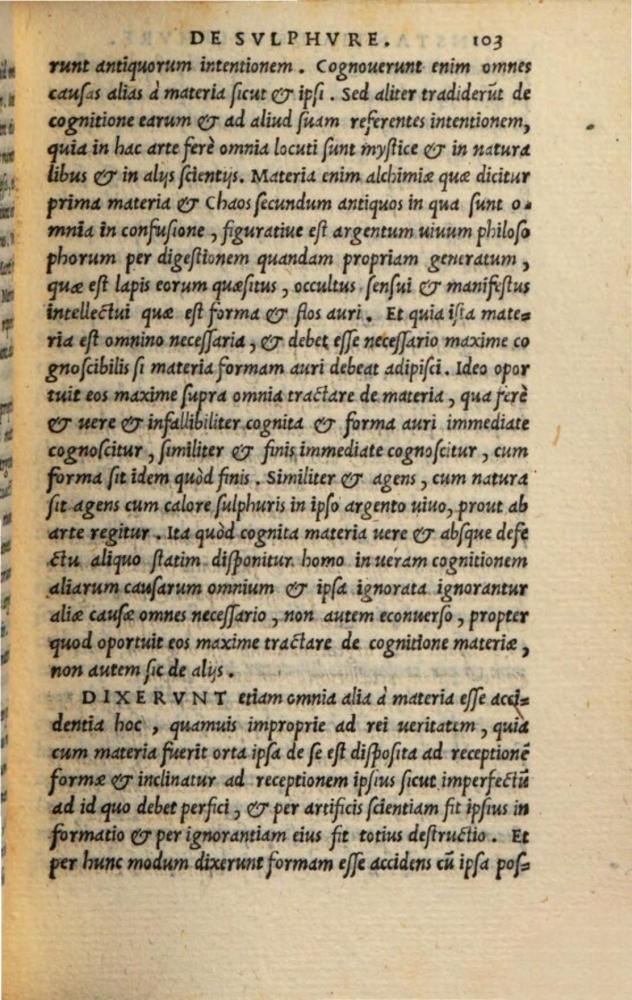 DE SVLPHVRE. 103
runt antiquorum intentionem. Cognouerunt enim omnes
causas alias à materia sicut & ipsi. Sed aliter tradiderũt de
cognitione earum & ad aliud suam referentes intentionem,
quia in hac arte ferè omnia locuti sunt mystice & in natura
libus & in alijs scientijs. Materia enim alchimiæ quæ dicitur
prima materia & Chaos secundum antiquos in qua sunt o=
mnia in confusione, figuratiue est argentum uiuum philoso
phorum per digestionem quandam propriam generatum,
quæ est lapis eorum quæsitus, occultus sensui & manifestus
intellectui quæ est forma & flos auri. Et quia ista mate=
ria est omnino necessaria, & debet esse necessario maxime co
gnoscibilis si materia formam auri debeat adipisci. Ideo opor
tuit eos maxime supra omnia tractare de materia, qua ferè
& uere & infallibiliter cognita & forma auri immediate
cognoscitur, similiter & finis immediate cognoscitur, cum
forma sit idem quòd finis. Similiter & agens, cum natura
sit agens cum calore sulphuris in ipso argento uiuo, prout ab
arte regitur. Ita quòd cognita materia uere & absque defe
ctu aliquo statim disponitur homo in ueram cognitionem
aliarum causarum omnium & ipsa ignorata ignorantur
aliæ causæ omnes necessario, non autem econuerso, propter
quod oportuit eos maxime tractare de cognitione materiæ,
non autem sic de alijs.
DIXERVNT etiam omnia alia à materia esse acci=
dentia hoc, quamuis improprie ad rei ueritatem, quia
cum materia fuerit orta ipsa de se est disposita ad receptionẽ
formæ & inclinatur ad receptionem ipsius sicut imperfectũ
ad id quo debet perfici, & per artificis scientiam fit ipsius in
formatio & per ignorantiam eius fit totius destructio. Et
per hunc modum dixerunt formam esse accidens cũ ipsa pos=